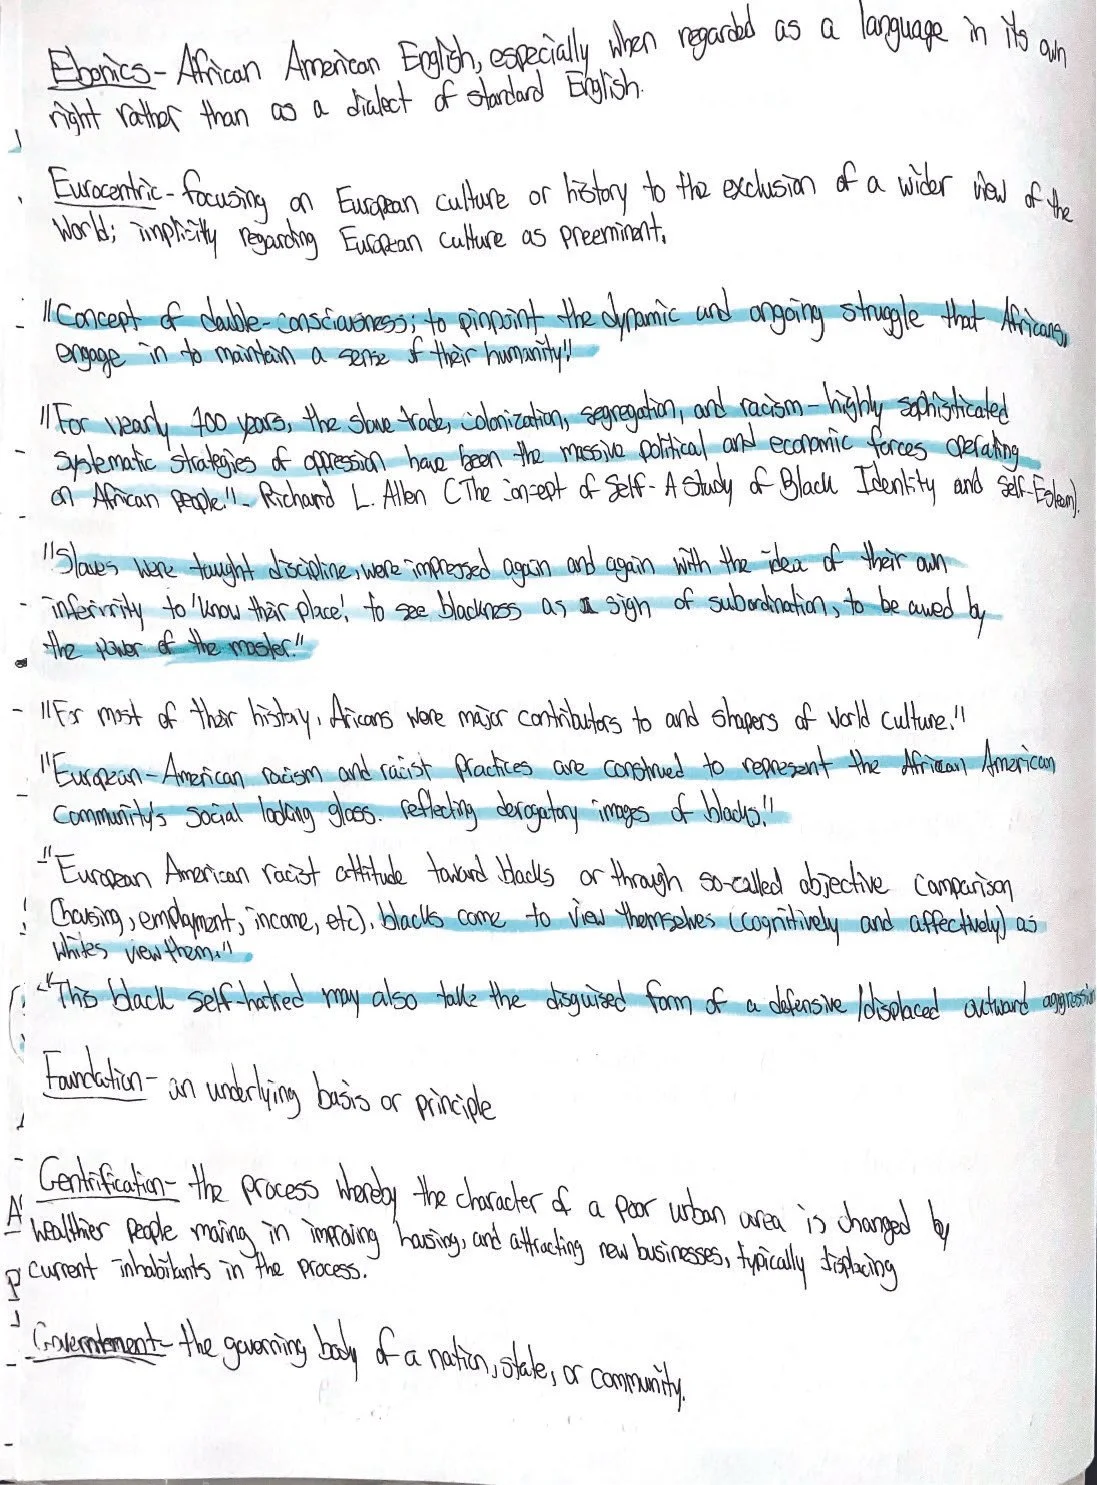 Ebonics - African American English, especially when regarded as a language in its own
right rather than as a dialect of standard English.
Eurocentric - focusing on European culture or history to the exclusion of a wider view of the
World; implicitly regarding European culture as preeminent.
"Concept of double-consciousness; to pinpoint the dynamic and ongoing struggle that Africans,
engage in to maintain a sense of their humanity"
"For nearly 400 years, the slave trade, colonization, segregation, and racism - highly sophisticated
systematic strategies of oppression have been the massive political and economic forces operating
on African people." - Richard L. Allen (The Concept of Self - A Study of Black Identity and Self-Esteem).
"Slaves were taught discipline, were impressed again and again with the idea of their own
inferirrity to 'know their place', to see blackness as a sign of subordination, to be awed by
the power of the master."
"For most of their history, Aricans were major contributors to and shapers of world culture."
"European-American racism and racist practices are construed to represent the African American
Community's social looking glass. reflecting derogatory images of blacks."
"European American racist attitude toward blacks or through so-called objective comparison
(housing, employment, income, etc), blacks come to view themselves (cognitively and affectively) as
whites view them."
"This black self-hatred may also take the disguised form of a defensive/displaced outward aggression
Foundation - an underlying basis or principle
Gentrification - the process whereby the character of a poor urban area is changed by
wealthier people moving in improving housing, and attracting new businesses, typically displacing
current inhabitants in the process.
Governtement - the governing body of a nation, state, or community.